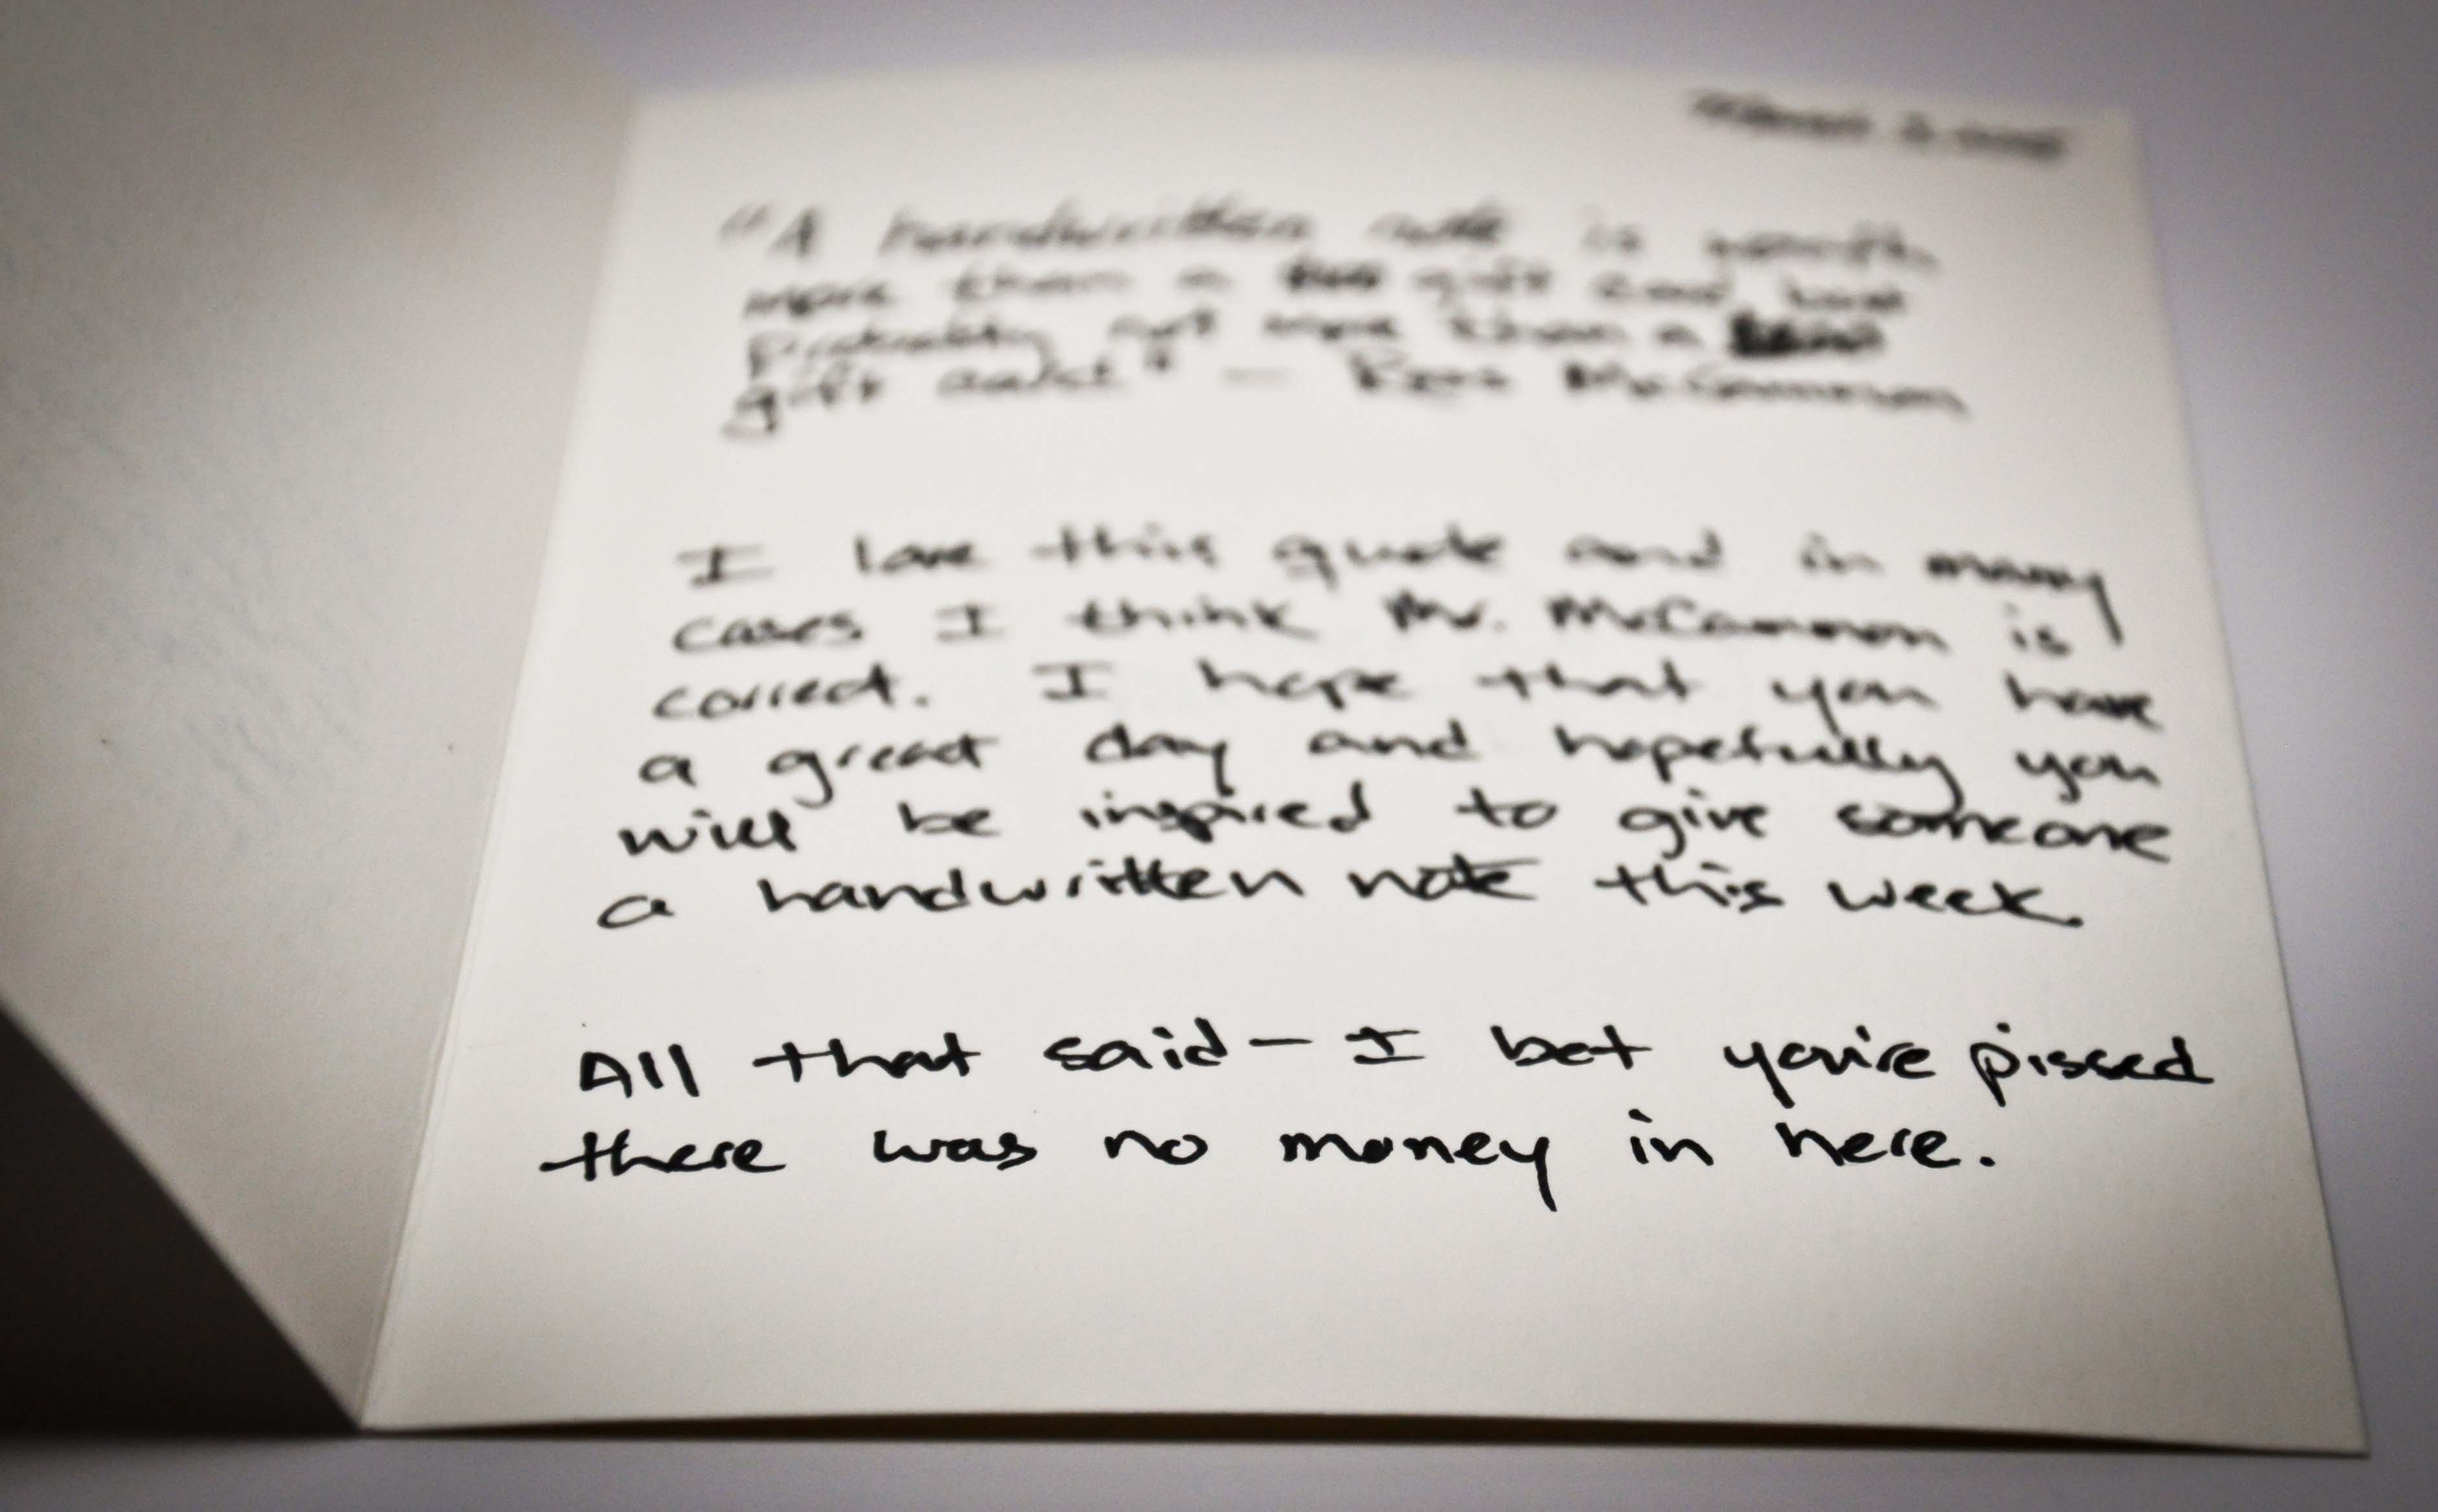 "A handwritten note is worth
more than a gift card, but
Probably not more than a
gift card." — Ross McCammon
I love this quote and in many
cases I think Mr. McCammon is
correct. I hope that you have
a great day and hopefully you
will be inspired to give someone
a handwritten note this week.
All that said - I bet you're pissed
there was no money in here.